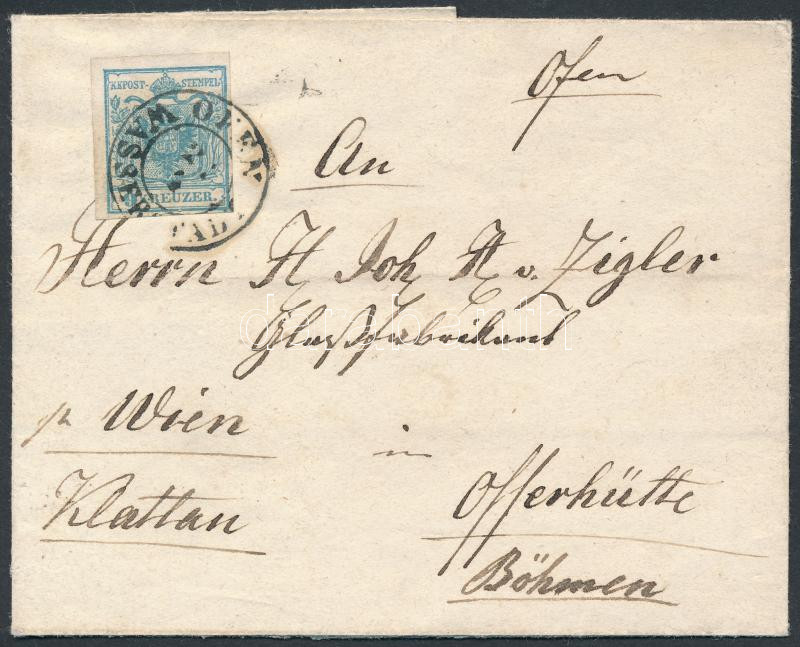 Ofen
KKPOST-STEMPEL
OFEN
WASSERSTADT
KREUZER.
An
Herrn H Joh A v. Zigler
Glasfabrikant
darabanth
pr Wien
in
Klattau
Offerhütte
Böhmen